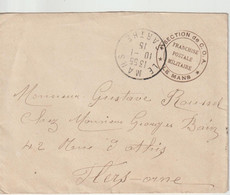 LE MANS
SARTHE
13 50
10 - 1
15
SECTION de C.O.A.
FRANCHISE
POSTALE
MILITAIRE
LE MANS
Monsieur Gustave
Chez Monsieur Georges
42 Rue d'
Flers - Orne